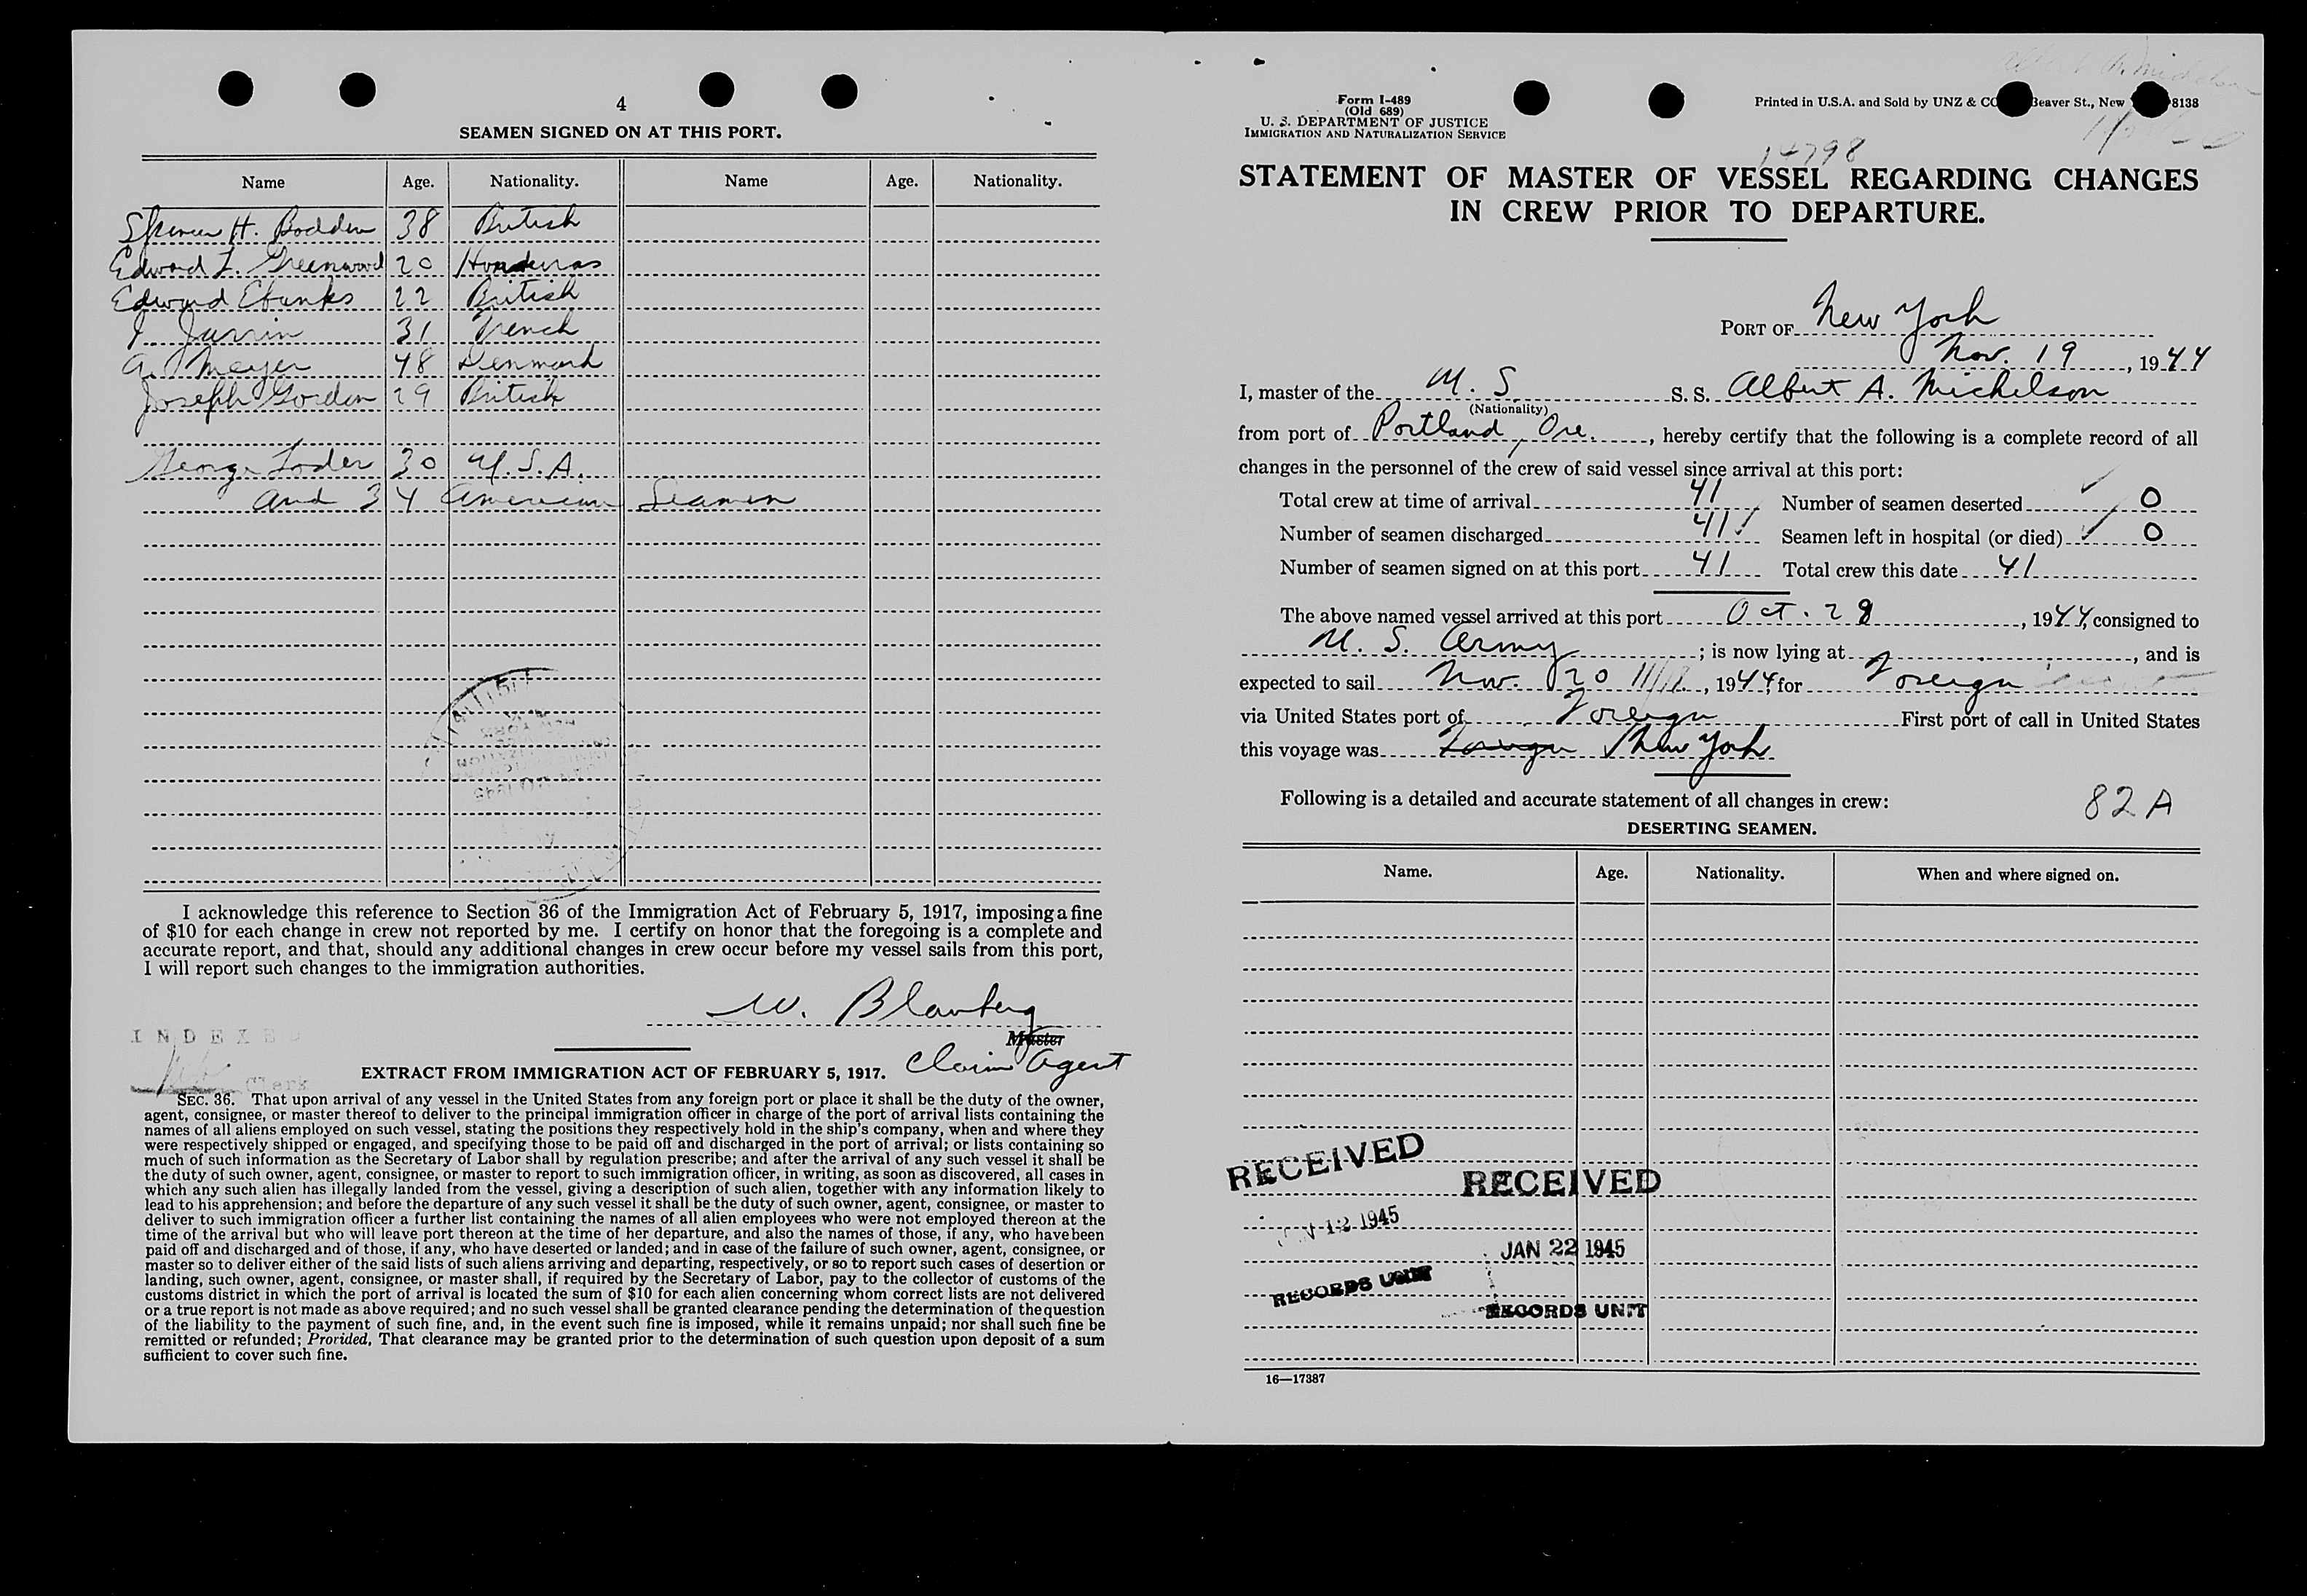 4
SEAMEN SIGNED ON AT THIS PORT.
Name Age. Nationality. Name Age. Nationality.
Spencer H. Bodden 38 British
Edward L. Greenwood 20 Honduras
Edward Ebanks 22 British
J. Jarrin 31 French
A. Meyer 48 Denmark
Joseph Gordon 29 British
George Loder 30 U.S.A.
and 34 American Seamen
I acknowledge this reference to Section 36 of the Immigration Act of February 5, 1917, imposing a fine
of $10 for each change in crew not reported by me. I certify on honor that the foregoing is a complete and
accurate report, and that, should any additional changes in crew occur before my vessel sails from this port,
I will report such changes to the immigration authorities.
W. Blanberg
Master
Claim Agent
INDEXED
Clerk
EXTRACT FROM IMMIGRATION ACT OF FEBRUARY 5, 1917.
SEC. 36. That upon arrival of any vessel in the United States from any foreign port or place it shall be the duty of the owner,
agent, consignee, or master thereof to deliver to the principal immigration officer in charge of the port of arrival lists containing the
names of all aliens employed on such vessel, stating the positions they respectively hold in the ship's company, when and where they
were respectively shipped or engaged, and specifying those to be paid off and discharged in the port of arrival; or lists containing so
much of such information as the Secretary of Labor shall by regulation prescribe; and after the arrival of any such vessel it shall be
the duty of such owner, agent, consignee, or master to report to such immigration officer, in writing, as soon as discovered, all cases in
which any such alien has illegally landed from the vessel, giving a description of such alien, together with any information likely to
lead to his apprehension; and before the departure of any such vessel it shall be the duty of such owner, agent, consignee, or master to
deliver to such immigration officer a further list containing the names of all alien employees who were not employed thereon at the
time of the arrival but who will leave port thereon at the time of her departure, and also the names of those, if any, who have been
paid off and discharged and of those, if any, who have deserted or landed; and in case of the failure of such owner, agent, consignee, or
master so to deliver either of the said lists of such aliens arriving and departing, respectively, or so to report such cases of desertion or
landing, such owner, agent, consignee, or master shall, if required by the Secretary of Labor, pay to the collector of customs of the
customs district in which the port of arrival is located the sum of $10 for each alien concerning whom correct lists are not delivered
or a true report is not made as above required; and no such vessel shall be granted clearance pending the determination of the question
of the liability to the payment of such fine, and, in the event such fine is imposed, while it remains unpaid; nor shall such fine be
remitted or refunded; Provided, That clearance may be granted prior to the determination of such question upon deposit of a sum
sufficient to cover such fine.
Form I-489
(Old 689)
U. S. DEPARTMENT OF JUSTICE
IMMIGRATION AND NATURALIZATION SERVICE
Printed in U.S.A. and Sold by UNZ & CO Beaver St., New 8138
14798
STATEMENT OF MASTER OF VESSEL REGARDING CHANGES
IN CREW PRIOR TO DEPARTURE.
PORT OF New York
Nov. 19, 1944
I, master of the U. S. S. S. Albert A. Michelson
(Nationality)
from port of Portland, Ore., hereby certify that the following is a complete record of all
changes in the personnel of the crew of said vessel since arrival at this port:
Total crew at time of arrival 41 Number of seamen deserted 0
Number of seamen discharged 41 Seamen left in hospital (or died) 0
Number of seamen signed on at this port 41 Total crew this date 41
The above named vessel arrived at this port Oct. 28, 1944, consigned to
U. S. Army; is now lying at , and is
expected to sail Nov. 20, 1944, for Foreign
via United States port of Foreign First port of call in United States
this voyage was Foreign New York
Following is a detailed and accurate statement of all changes in crew: 82 A
DESERTING SEAMEN.
Name. Age. Nationality. When and where signed on.
RECEIVED
12 1945
RECORDS UNIT
RECEIVED
JAN 22 1945
RECORDS UNIT
16—17387